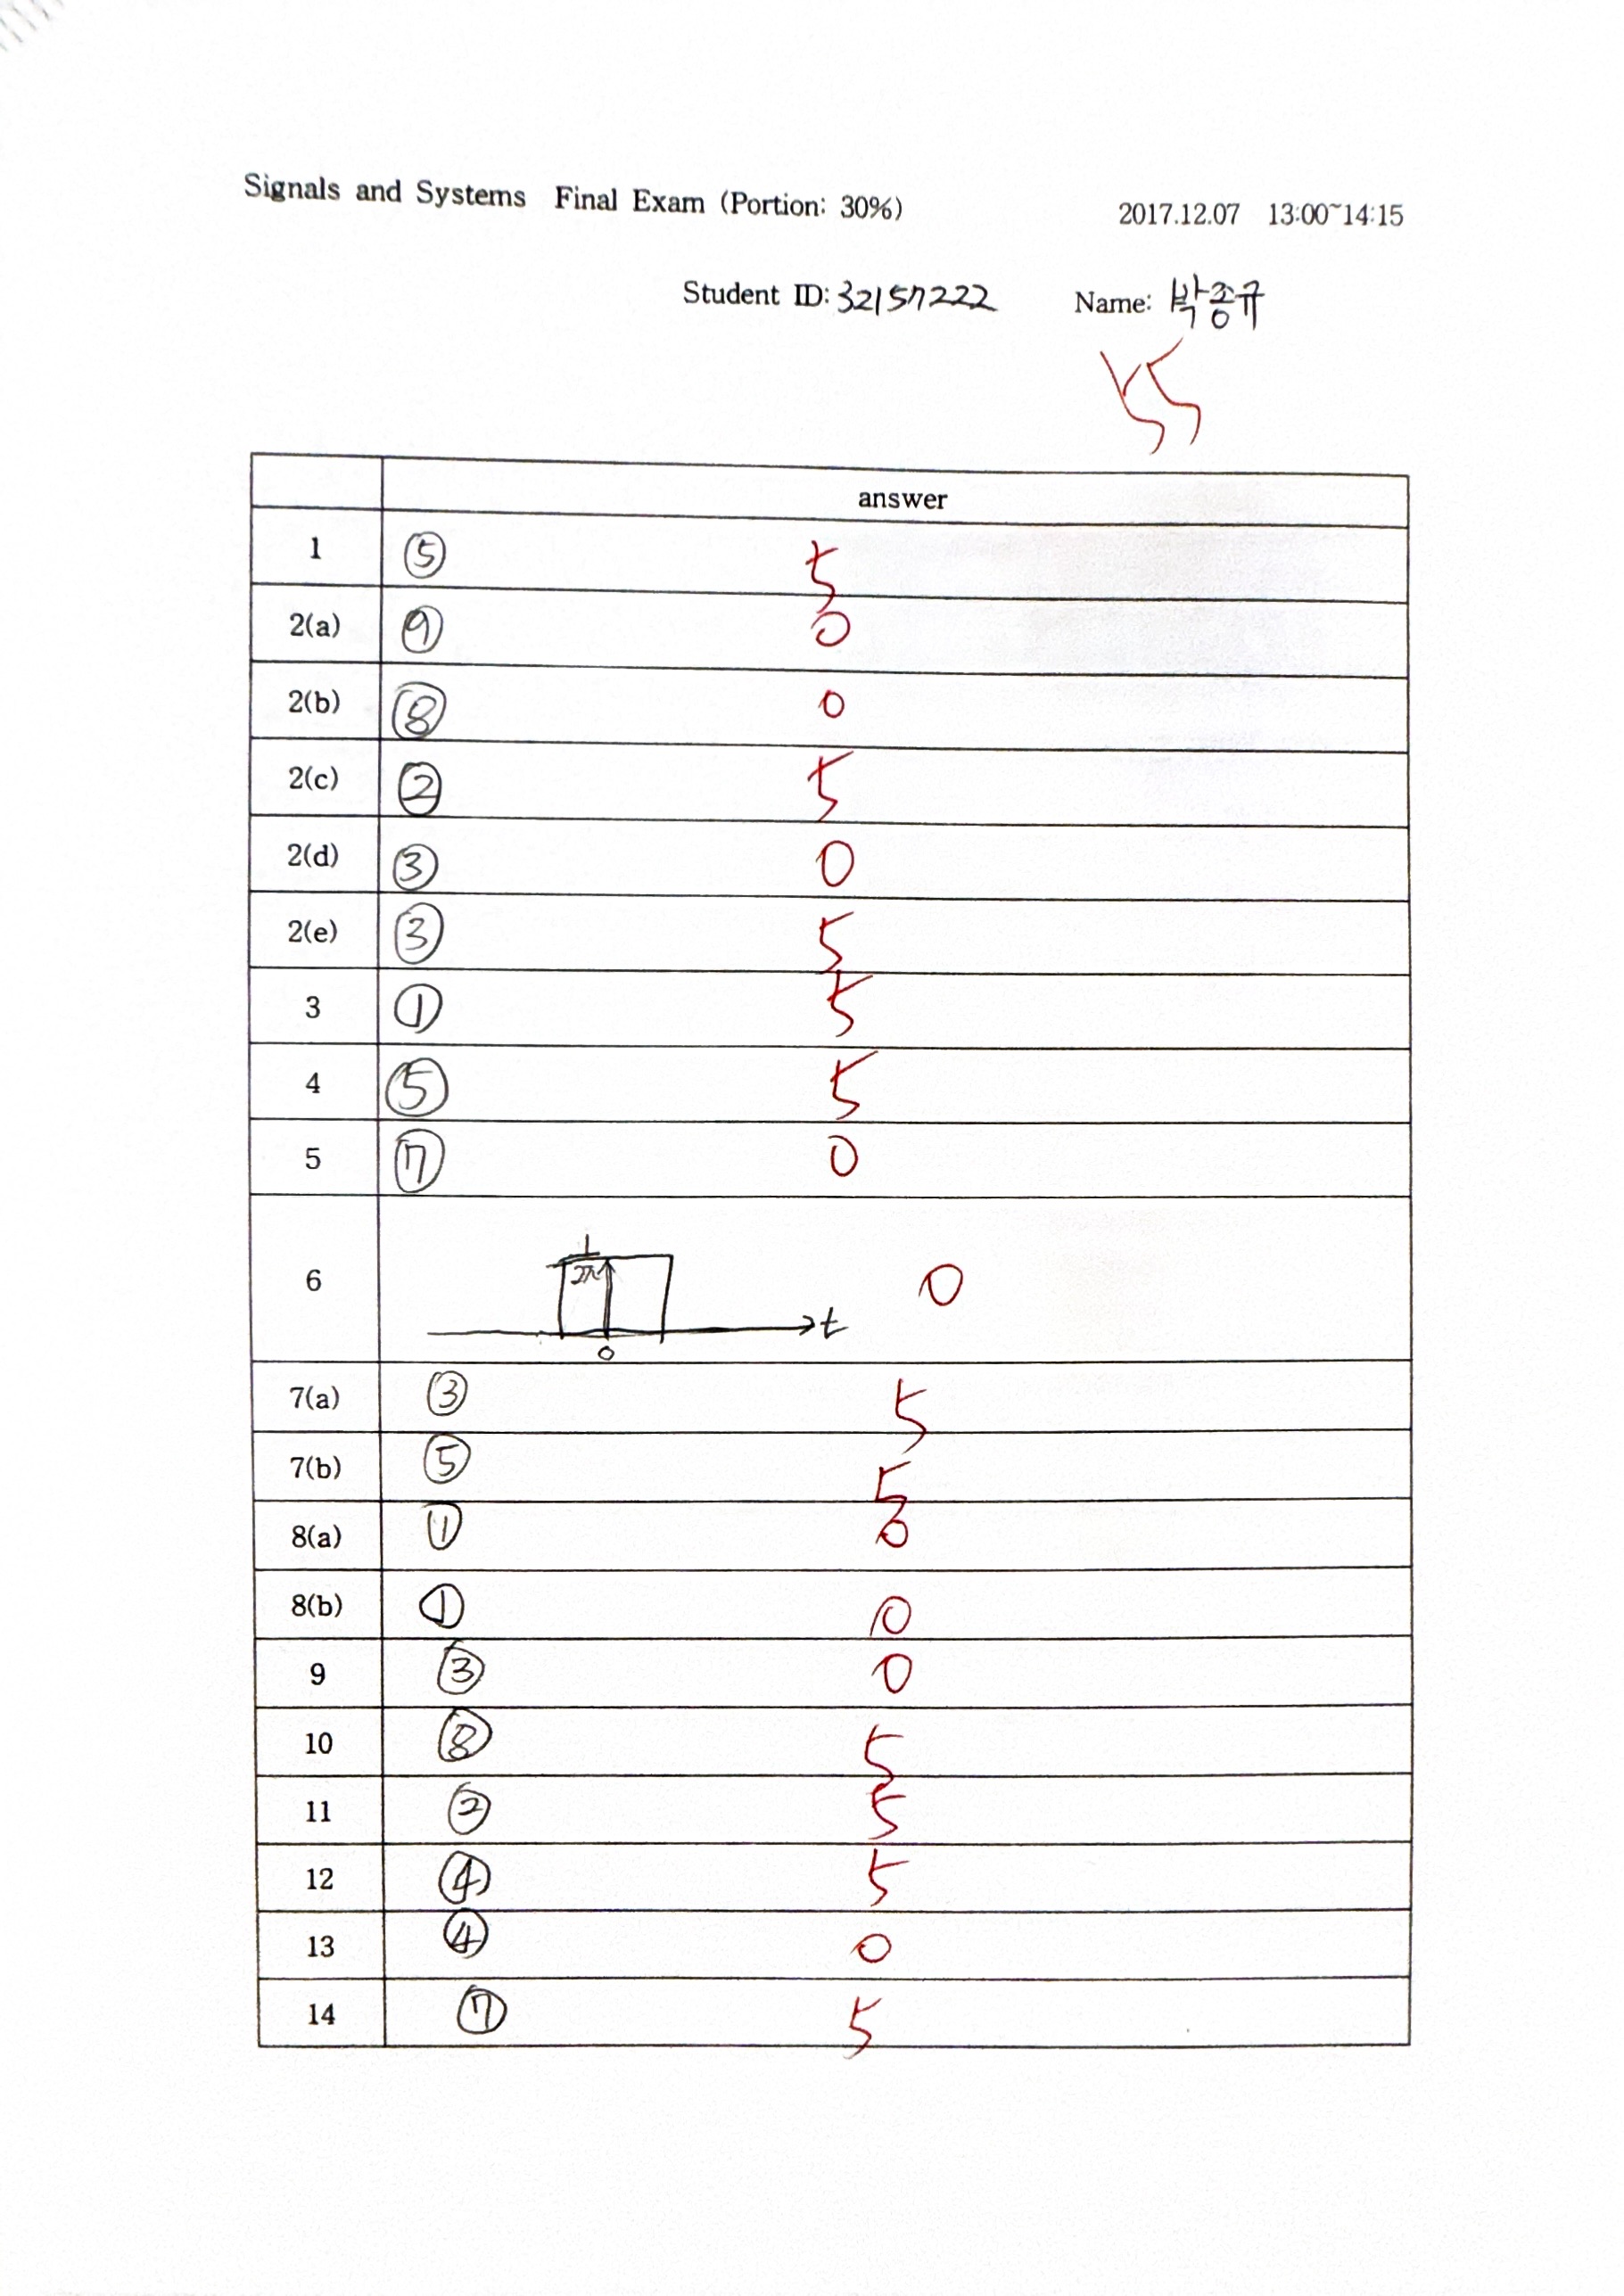 Signals and Systems Final Exam (Portion: 30%) 2017.12.07 13:00~14:15
Student ID: 32157222 Name: 박종규
55
answer
1 ⑤ 5
2(a) ⑨ 0
2(b) ⑧ 0
2(c) ② 5
2(d) ③ 0
2(e) ③ 5
3 ① 5
4 ⑤ 5
5 ⑦ 0
6 1/2π 0 t 0
7(a) ③ 5
7(b) ⑤ 5
8(a) ① 0
8(b) ① 0
9 ③ 0
10 ⑧ 5
11 ② 5
12 ④ 5
13 ④ 0
14 ⑦ 5